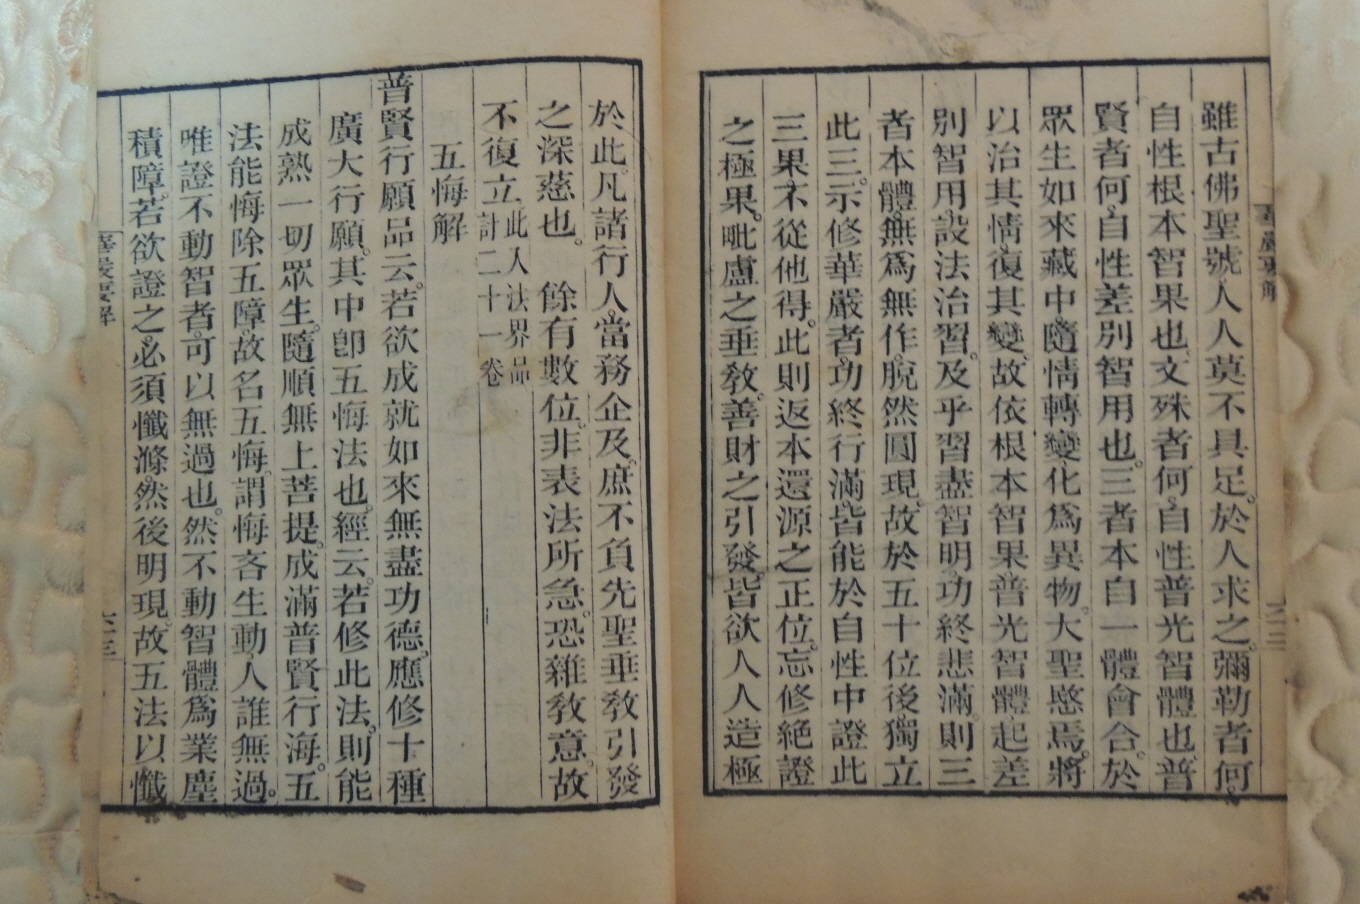 雖古佛聖號。人人莫不具足。於人求之。彌勒者何。
自性根本智果也。文殊者何。自性普光智體也。普
賢者何。自性差別智用也。三者本自一體會合。於
眾生如來藏中。隨情轉變。化為異物。大聖愍焉。將
以治其情。復其變。故依根本智果普光智體。起差
別智用。設法治習。及乎習盡智明。功終悲滿。則三
者本體。無為無作。脫然圓現。故於五十位後。獨立
此三。示修華嚴者。功終行滿。皆能於自性中證此
三果。不從他得。此則返本還源之正位。忘修絕證
之極果。毗盧之垂教。善財之引發。皆欲人人造極
於此。凡諸行人。當務企及。庶不負先聖垂教引發
之深慈也。　餘有數位。非表法所急。恐雜教意。故
不復立 此入法界品
計二十一卷
五悔解
普賢行願品云。若欲成就如來無盡功德。應修十種
廣大行願。其中卽五悔法也。經云。若修此法。則能
成熟一切眾生。隨順無上菩提。成滿普賢行海。五
法能悔除五障。故名五悔。謂悔吝生動。人誰無過。
唯證不動智者。可以無過也。然不動智體為業塵
積障。若欲證之。必須懺滌。然後明現。故五法以懺
華嚴要解
六十三